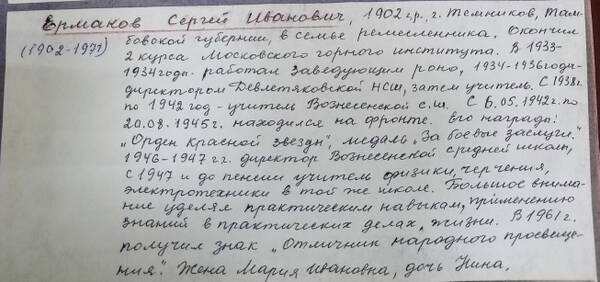 Ермаков Сергей Иванович, 1902 г.р., г. Темников, Там-
(1902-1971) бовской губернии, в семье ремесленника. Окончил
2 курса Московского горного института. В 1933-
1934годы. работал заведующим роно, 1934-1936годы-
директором Девлетяковской НСШ, затем учитель. С 1938г.
по 1942 год - учитель Вознесенской с.ш. С 6.05.1942г. по
20.08.1945г. находился на фронте. Его награды:
"Орден Красной звезды", медаль "За боевые заслуги."
1946-1947 гг. директор Вознесенской средней школы,
с 1947 и до пенсии учитель физики, черчения,
электротехники в той же школе. Большое внима-
ние уделял практическим навыкам, применению
знаний в практических делах, жизни. В 1961 г.
получил знак "Отличник народного просвеще-
ния". Жена Мария Ивановна, дочь Нина.